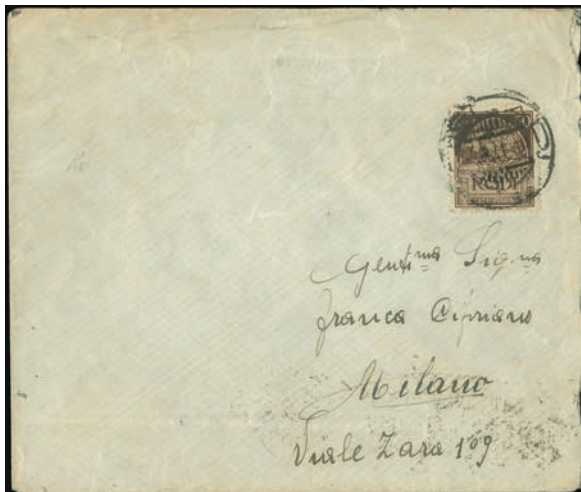 Gentᵐᵃ Sigⁿᵃ
Franca Cipriano
Milano
Viale Zara 109